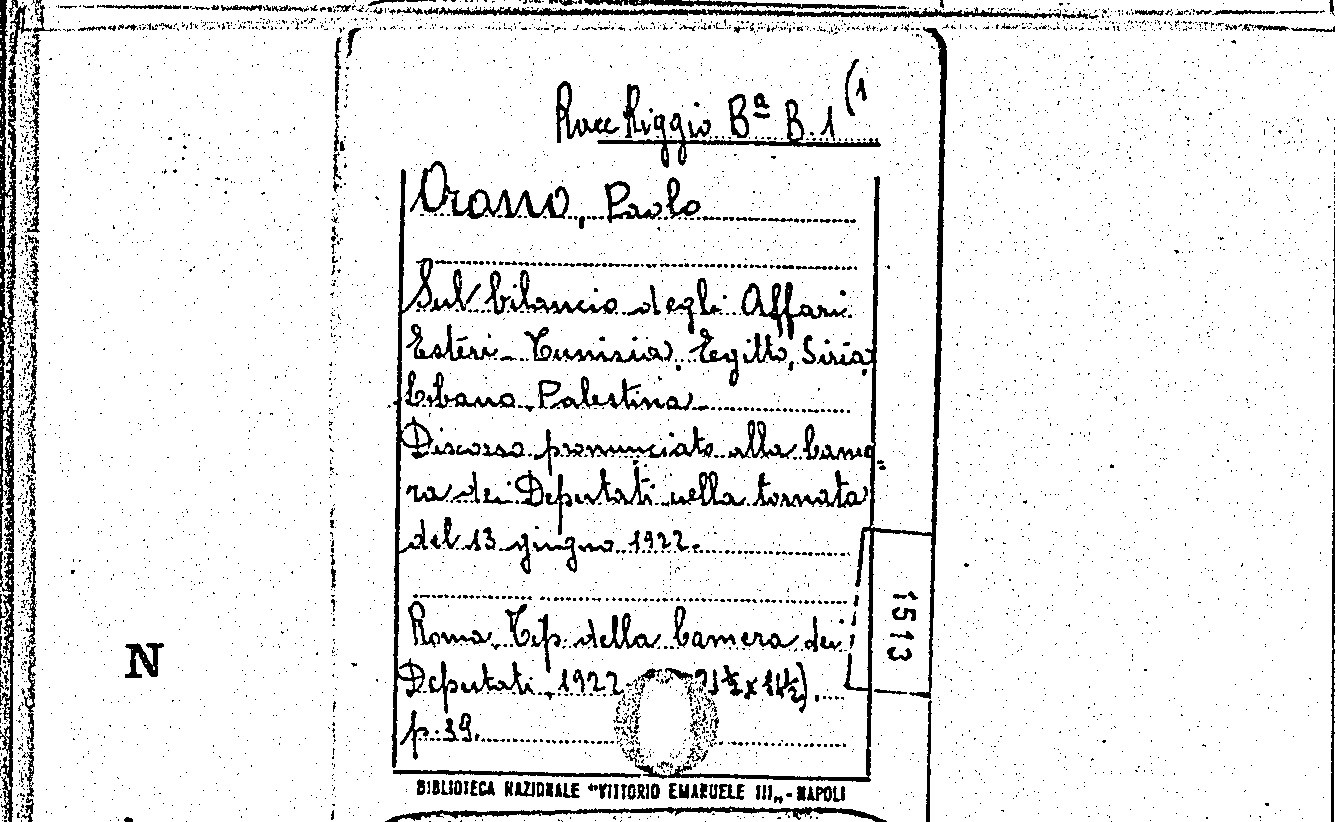 Racc Riggio Bª B.1 (1
Orano, Paolo
Sul bilancio degli Affari
Esteri - Tunisia, Egitto, Siria,
Libano, Palestina
Discorso pronunciato alla Came=
ra dei Deputati nella tornata
del 13 giugno 1922.
Roma, Tip. della Camera dei
Deputati, 1922
p. 39.
1513
N
BIBLIOTECA NAZIONALE "VITTORIO EMANUELE III„ - NAPOLI